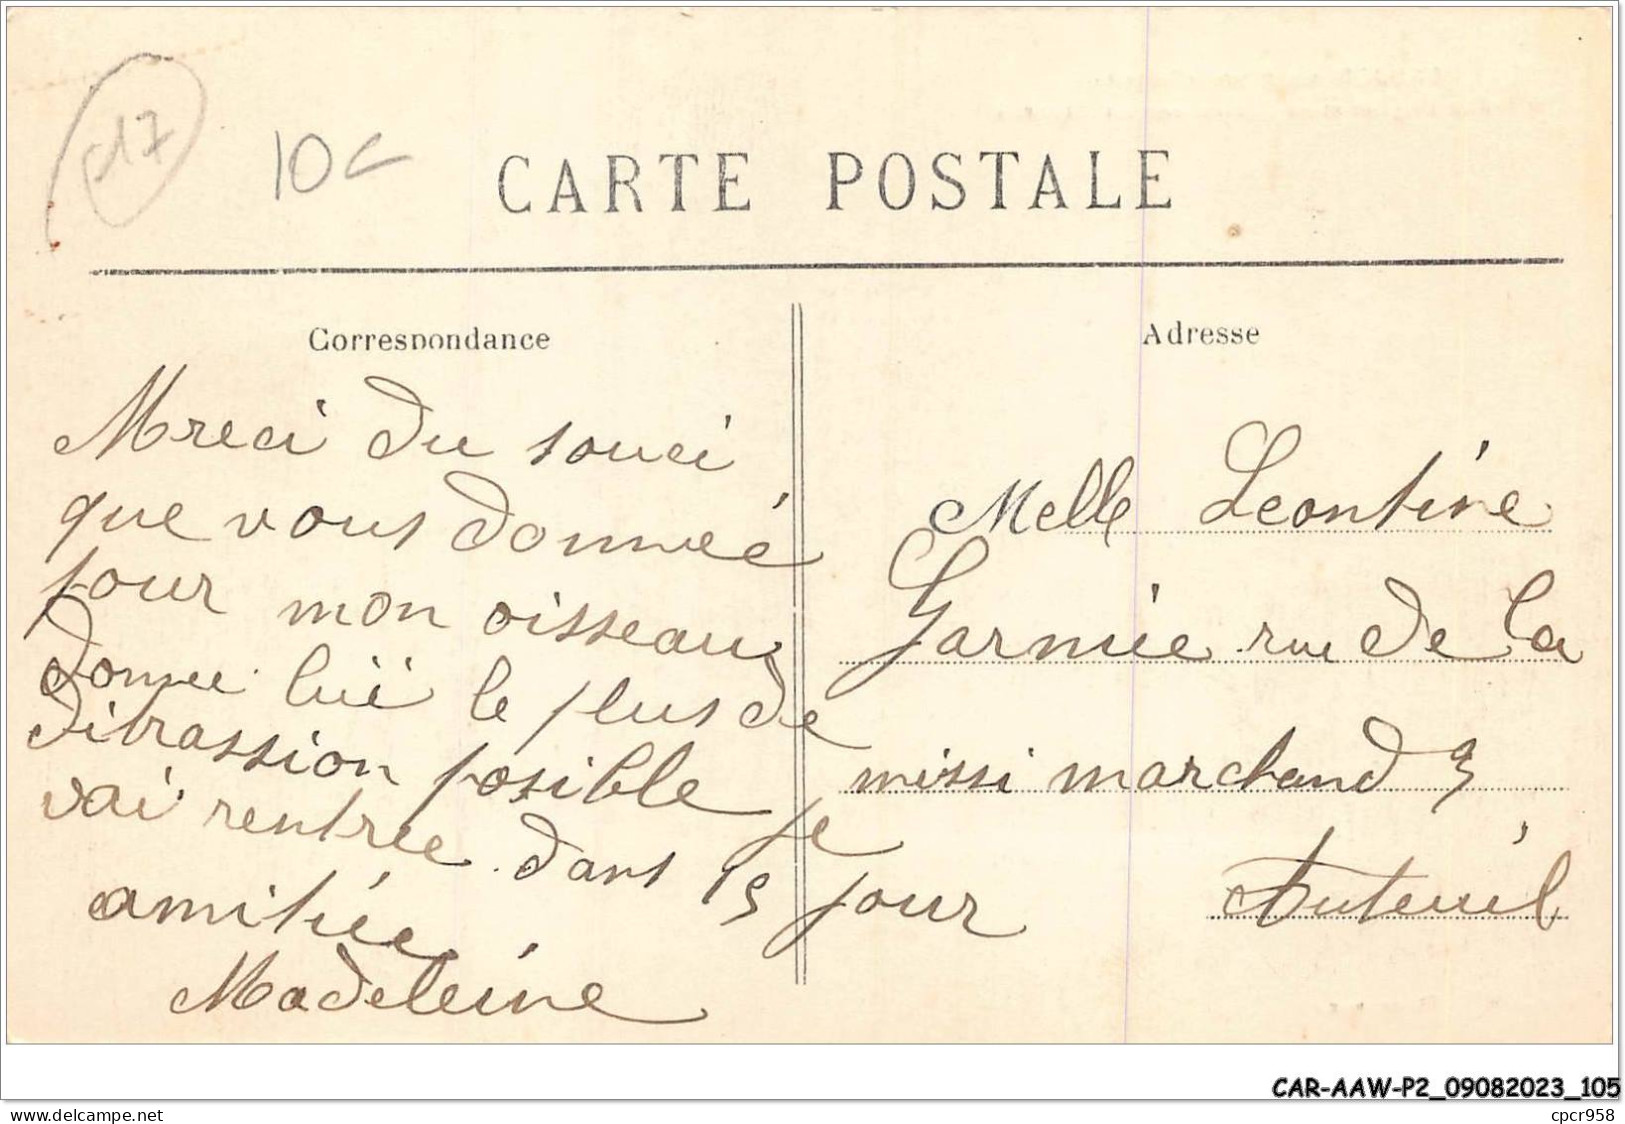 d17
10c
CARTE POSTALE
Correspondance
Mreci du souci
que vous donneé
pour mon oisseau
donnee luï le plus de
distrassion posible je
vai rentree dans 15 jour
amitiée
Madeleine
Adresse
Melle Leontine
Garmie rue de la
missi marchand 9
Auteuil
CAR-AAW-P2_09082023_105
www.delcampe.net
cpcr958